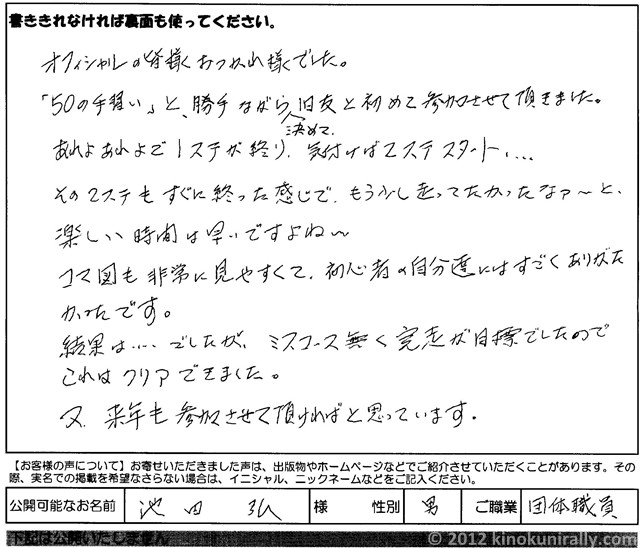 書ききれなければ裏面も使ってください。
オフィシャルの皆様おつかれ様でした。
「50の手習い」と、勝手ながら決めて、旧友と初めて参加させて頂きました。
あれよあれよで1ステが終り、気付けば2ステスタート、...
その2ステもすぐに終った感じで、もう少し走ってたかったなァ〜と、
楽しい時間は早いですよね〜
コマ図も非常に見やすくて、初心者の自分達にはすごくありがた
かったです。
結果は....でしたが、ミスコース無く完走が目標でしたので
これはクリアできました。
又、来年も参加させて頂ければと思っています。
【お客様の声について】お寄せいただきました声は、出版物やホームページなどでご紹介させていただくことがあります。その
際、実名での掲載を希望なさらない場合は、イニシャル、ニックネームなどをご記入ください。
公開可能なお名前 池田 弘 様 性別 男 ご職業 団体職員
下記は公開いたしません
© 2012 kinokunirally.com